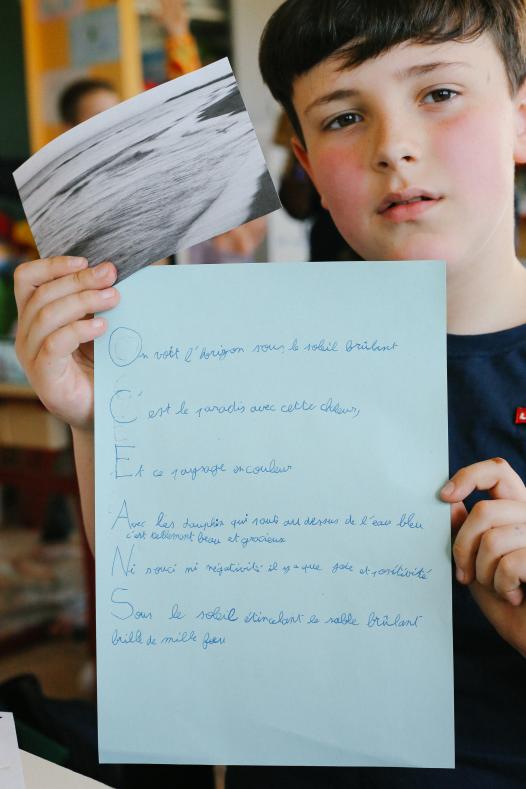 On voit l'horizon sous le soleil brûlant
C'est le paradis avec cette chaleur,
Et ce paysage en couleur
Avec les dauphin qui saute au dessus de l'eau bleu
c'est tellement beau et gracieux
Ni souci ni négativité il y a que joie et positivité
Sous le soleil étincelant le sable brûlant
brille de mille feux